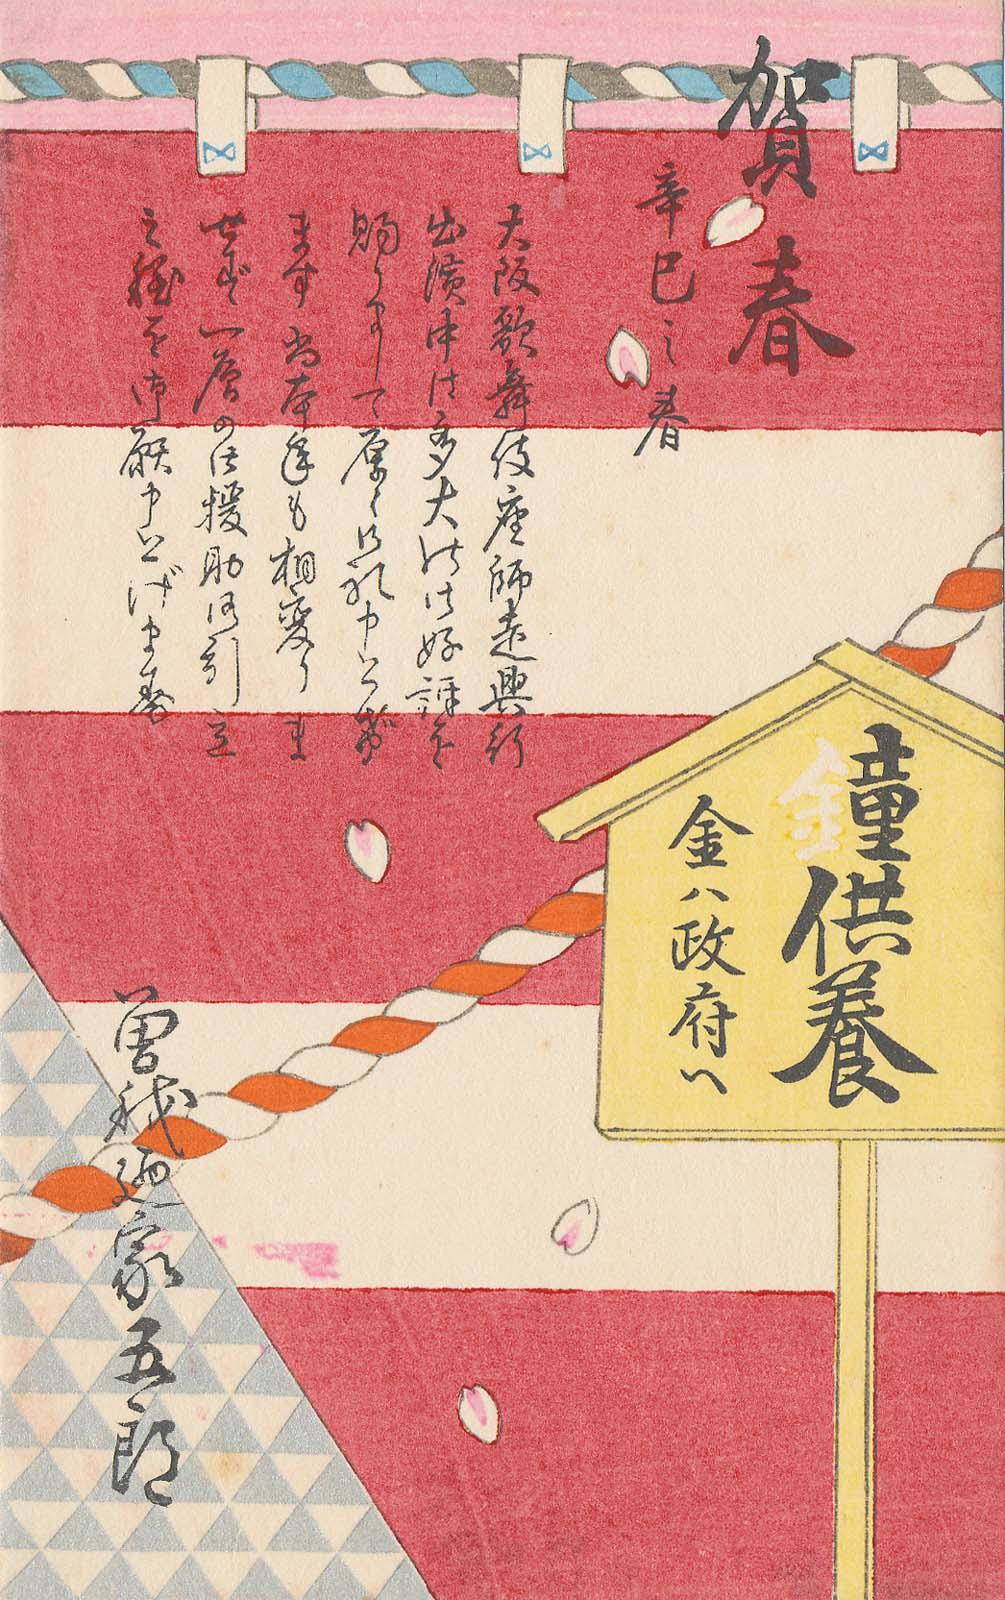 賀春
辛巳之春
大阪歌舞伎座師走興行
出演中は多大の御好評を
賜りまして厚く御礼申上げ
ます尚本年も相変りま
せず一層の御援助御引立
之程を御願申上げます
鐘供養
金ハ政府へ
曽我廼家五郎